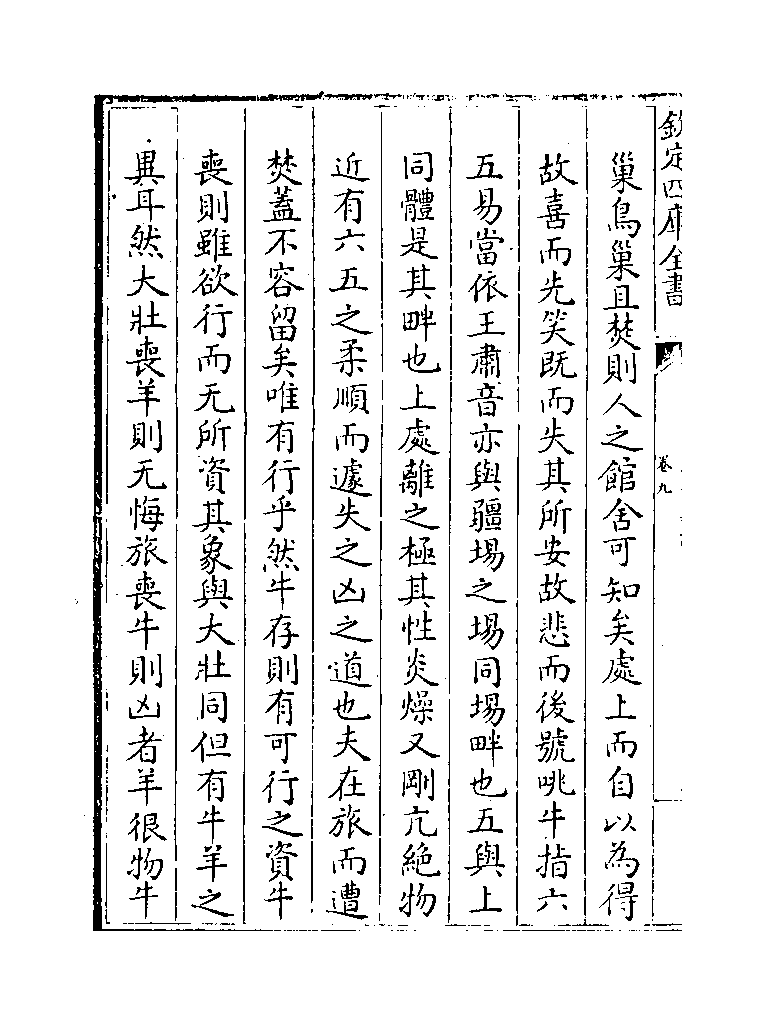 欽定四庫全書
卷九
巢鳥巢且焚則人之館舍可知矣處上而自以為得
故喜而先笑既而失其所安故悲而後號咷牛指六
五易當依王肅音亦與疆埸之埸同埸畔也五與上
同體是其畔也上處離之極其性炎燥又剛亢絶物
近有六五之柔順而遽失之凶之道也夫在旅而遭
焚蓋不容留矣唯有行乎然牛存則有可行之資牛
喪則雖欲行而无所資其象與大壯同但有牛羊之
異耳然大壯喪羊則无悔旅喪牛則凶者羊很物牛